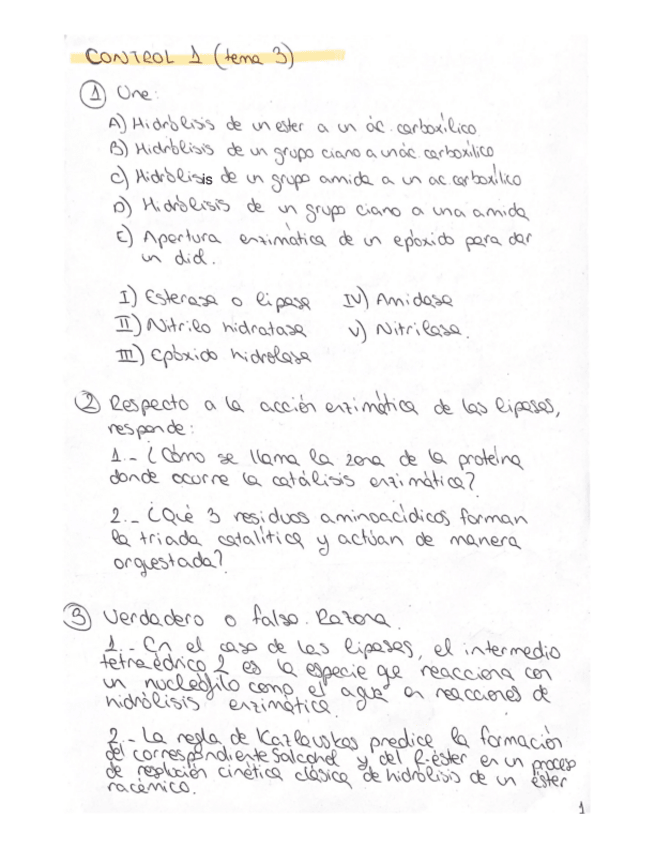 CONTROL 1 (tema 3)
① Une:
A) Hidrólisis de un ester a un ác. carboxílico
B) Hidrólisis de un grupo ciano a un ác carboxílico
C) Hidrólisis de un grupo amida a un ac carboxílico
D) Hidrólisis de un grupo ciano a una amida
E) Apertura enzimática de un epóxido para dar
un diol.
I) Esterasa o lipasa IV) Amidasa
II) Nitrilo hidratasa V) Nitrilasa.
III) Epóxido hidrolasa
② Respecto a la acción enzimática de las lipasas,
responde:
1.- ¿Cómo se llama la zona de la proteína
donde ocurre la catálisis enzimática?
2.- ¿Qué 3 residuos aminoacídicos forman
la triada catalítica y actúan de manera
orquestada?
③ Verdadero o falso. Razona.
1.- En el caso de las lipasas, el intermedio
tetraédrico 2 es la especie qe reacciona con
un nucleófilo como el agua en reacciones de
hidrólisis enzimática.
2.- La regla de Kazlauskas predice la formación
del correspondiente S alcohol y del R-éster en un proceso
de resolución cinética clásica de hidrólisis de un éster
racémico.
1